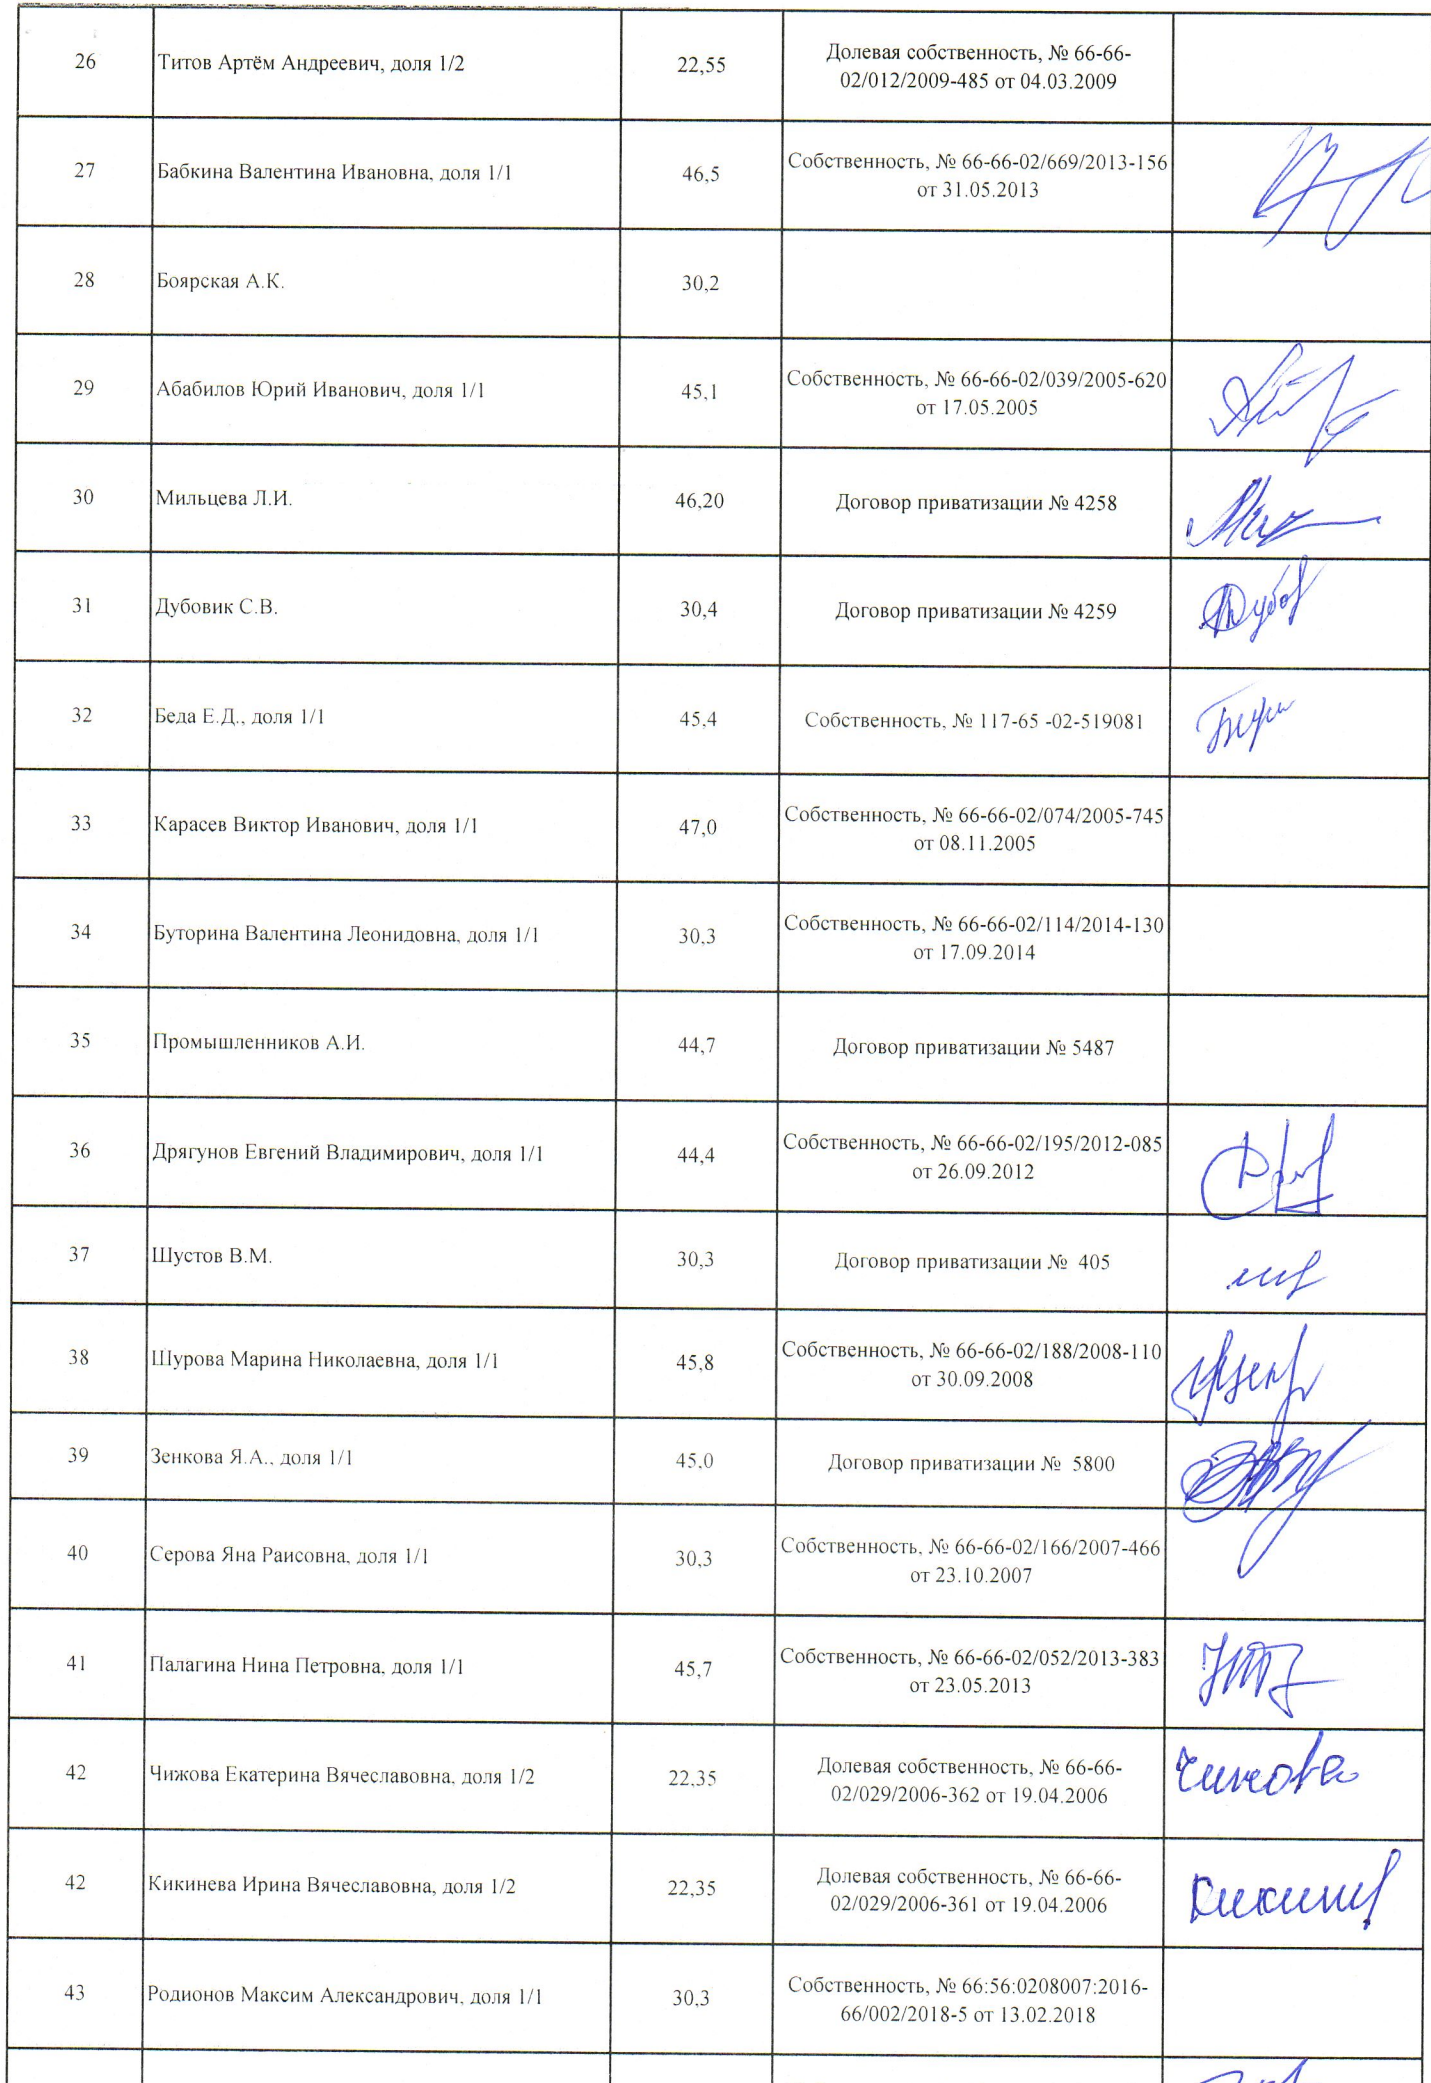 26
Титов Артём Андреевич, доля 1/2
22,55
Долевая собственность, № 66-66-
02/012/2009-485 от 04.03.2009
27
Бабкина Валентина Ивановна, доля 1/1
46,5
Собственность, № 66-66-02/669/2013-156
от 31.05.2013
28
Боярская А.К.
30,2
29
Абабилов Юрий Иванович, доля 1/1
45,1
Собственность, № 66-66-02/039/2005-620
от 17.05.2005
30
Мильцева Л.И.
46,20
Договор приватизации № 4258
31
Дубовик С.В.
30,4
Договор приватизации № 4259
Дубов
32
Беда Е.Д., доля 1/1
45,4
Собственность, № 117-65 -02-519081
33
Карасев Виктор Иванович, доля 1/1
47,0
Собственность, № 66-66-02/074/2005-745
от 08.11.2005
34
Буторина Валентина Леонидовна, доля 1/1
30,3
Собственность, № 66-66-02/114/2014-130
от 17.09.2014
35
Промышленников А.И.
44,7
Договор приватизации № 5487
36
Дрягунов Евгений Владимирович, доля 1/1
44,4
Собственность, № 66-66-02/195/2012-085
от 26.09.2012
37
Шустов В.М.
30,3
Договор приватизации № 405
38
Шурова Марина Николаевна, доля 1/1
45,8
Собственность, № 66-66-02/188/2008-110
от 30.09.2008
39
Зенкова Я.А., доля 1/1
45,0
Договор приватизации № 5800
40
Серова Яна Раисовна, доля 1/1
30,3
Собственность, № 66-66-02/166/2007-466
от 23.10.2007
41
Палагина Нина Петровна, доля 1/1
45,7
Собственность, № 66-66-02/052/2013-383
от 23.05.2013
42
Чижова Екатерина Вячеславовна, доля 1/2
22,35
Долевая собственность, № 66-66-
02/029/2006-362 от 19.04.2006
Чижова
42
Кикинева Ирина Вячеславовна, доля 1/2
22,35
Долевая собственность, № 66-66-
02/029/2006-361 от 19.04.2006
Кикинев
43
Родионов Максим Александрович, доля 1/1
30,3
Собственность, № 66:56:0208007:2016-
66/002/2018-5 от 13.02.2018